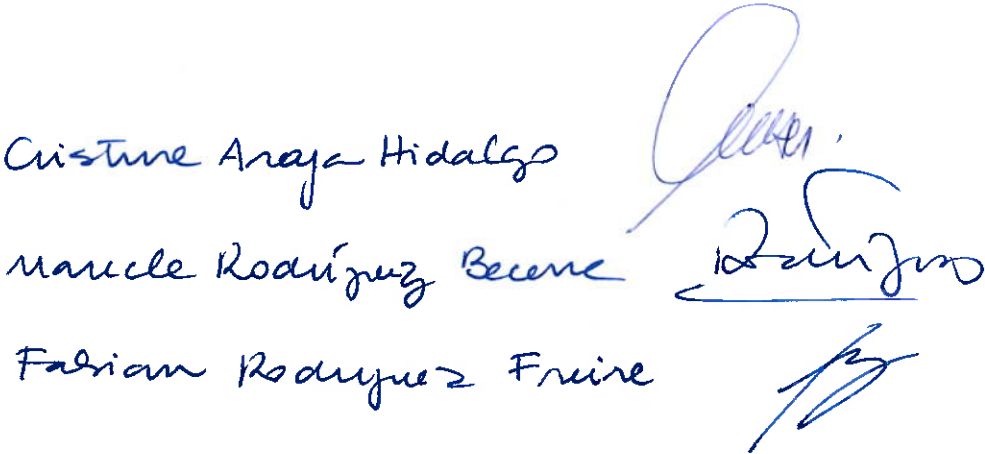 Cristina Araya Hidalgo
Marcela Rodríguez Becerra
Fabian Rodriguez Freire